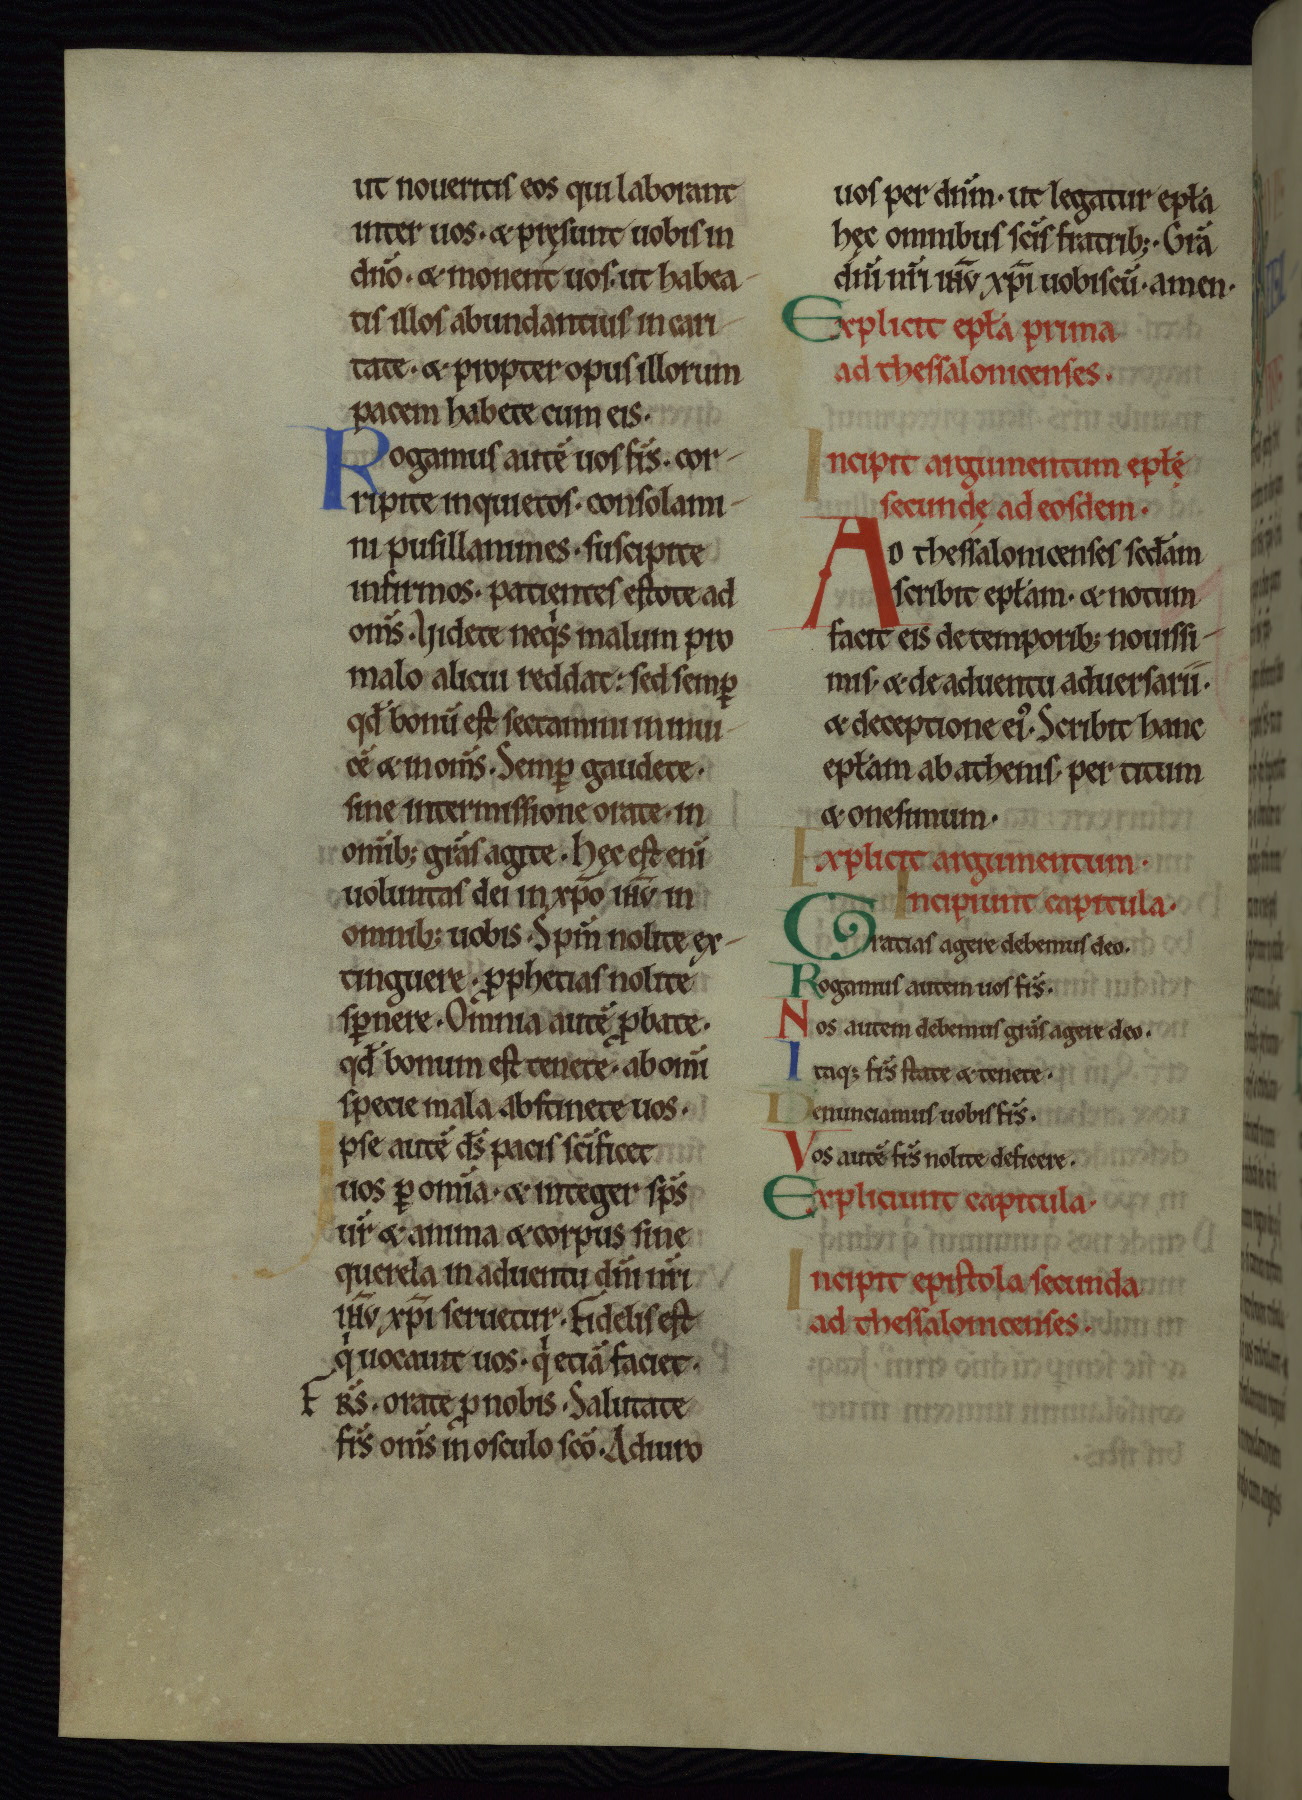 ut noueritis eos qui laborant
inter uos· & pręsunt uobis in
dn̄o· & monent uos· ut habea-
tis illos abundantius in cari-
tate· & propter opus illorum
pacem habete cum eis·
Rogamus autē uos fr̄s· cor-
ripite inquietos· consolami-
ni pusillanimes· suscipite
infirmos· patientes estote ad
om̄s· Videte neqͥs malum pro
malo alicui reddat: sed semp̲
qđ bonū est sectamini in inui-
cē & in om̄s· Semp̲ gaudete·
sine intermissione orate· in
om̄ib; grās agite· Hęc est eni̅
uoluntas dei in xp̄o ihū in
omnib; uobis· Spm̄ nolite ex-
tinguere· ꝓphetias nolite
sp̲nere· Omnia autē ꝓbate·
qđ bonum est tenete· ab om̄i
specie mala abstinete uos·
Ipse autē d̄s pacis sc̄ificet
uos p̲ om̄ia· & integer sp̄s
ur̄ & anima & corpus sine
querela in aduentu dn̄i nr̄i
ihū xp̄i seruetur· Fidelis est
qͥ uocauit uos· qͥ etiā faciet·
FRS̄· orate ꝓ nobis· Salutate
fr̄s om̄s in osculo sc̄o· Adiuro
uos per dn̄m· ut legatur epl̄a
hęc omnibus sc̄is fratrib;· Grā
dn̄i nr̄i ihū xp̄i uobiscū· amen·
Explicit epl̄a prima
ad thessalonicenses·
Incipit argumentum epl̄ę
secundę ad eosdem·
AD thessalonicenses secđam
scribit epl̄am· & notum
facit eis de temporib; nouissi-
mis· & de aduentu aduersarii·
& deceptione eiꝰ· Scribit hanc
epl̄am ab athenis· per titum
& onesimum·
Explicit argumentum·
Incipiunt capitula·
Gratias agere debemus deo·
Rogamus autem uos fr̄s·
Nos autem debemus grās agere deo·
Itaq; fr̄s state & tenete·
Denunciamus uobis fr̄s·
Vos autē fr̄s nolite deficere·
Expliciunt capitula·
Incipit epistola secunda
ad thessalonicenses·